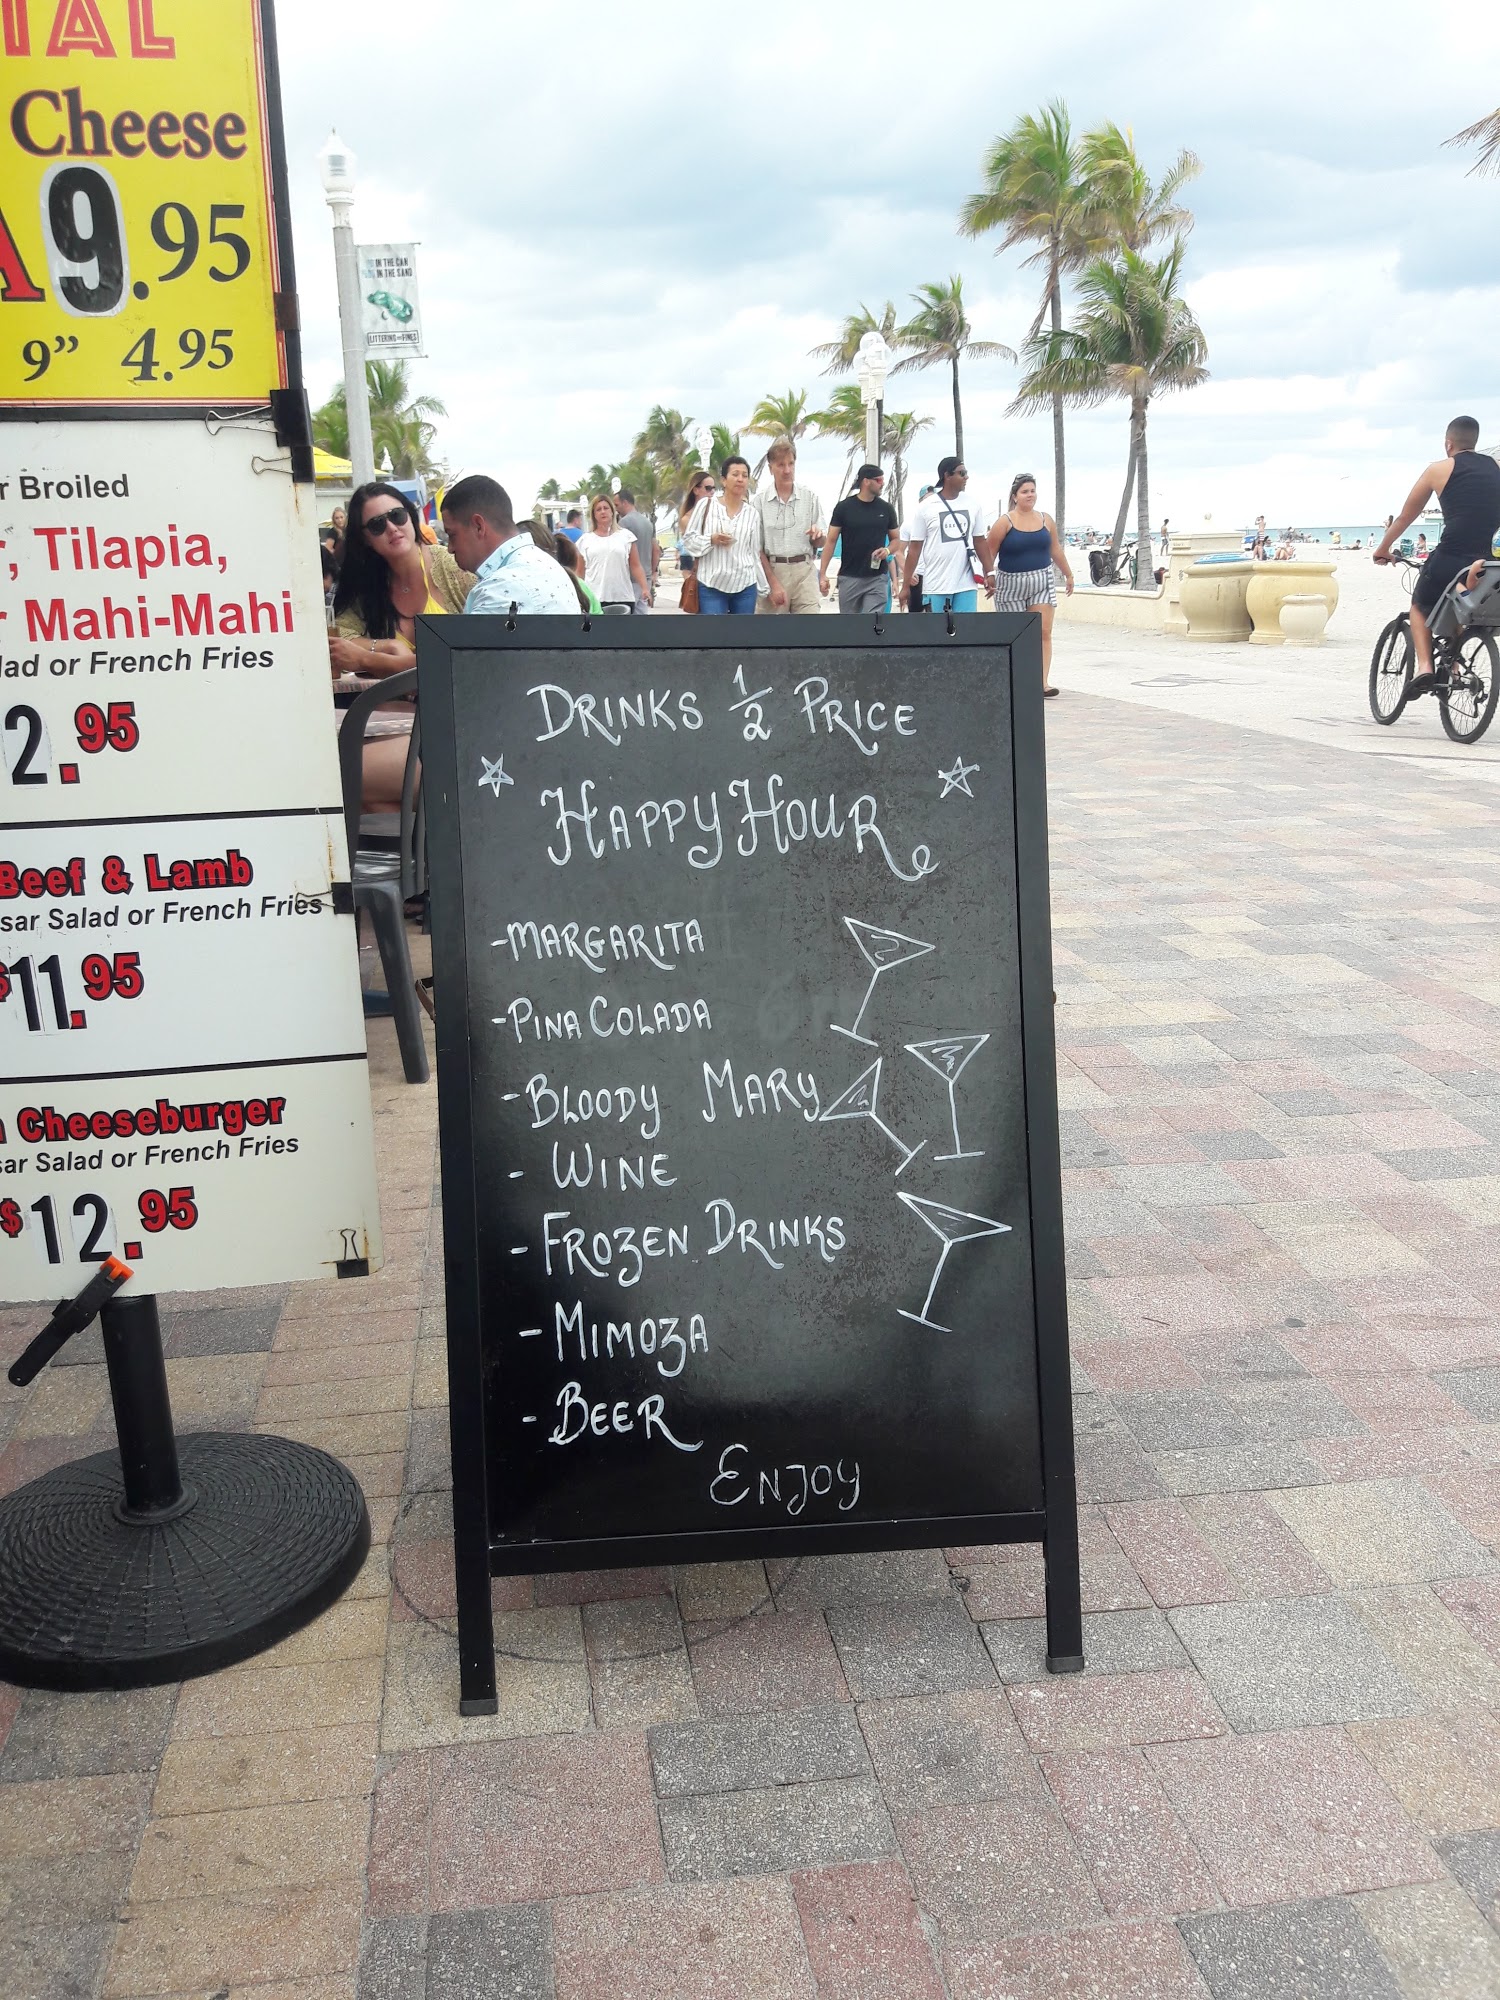 IAL
Cheese
9.95
9" 4.95
Broiled
Tilapia,
Mahi-Mahi
or French Fries
2.95
Beef & Lamb
Salad or French Fries
$11.95
Cheeseburger
Salad or French Fries
$12.95
IN THE CAN
IN THE SAND
LITTERING FINES
DRINKS 1/2 PRICE
HAPPY HOUR
-MARGARITA
-PINA COLADA
-BLOODY MARY
- WINE
- FROZEN DRINKS
- MIMOZA
- BEER
ENJOY